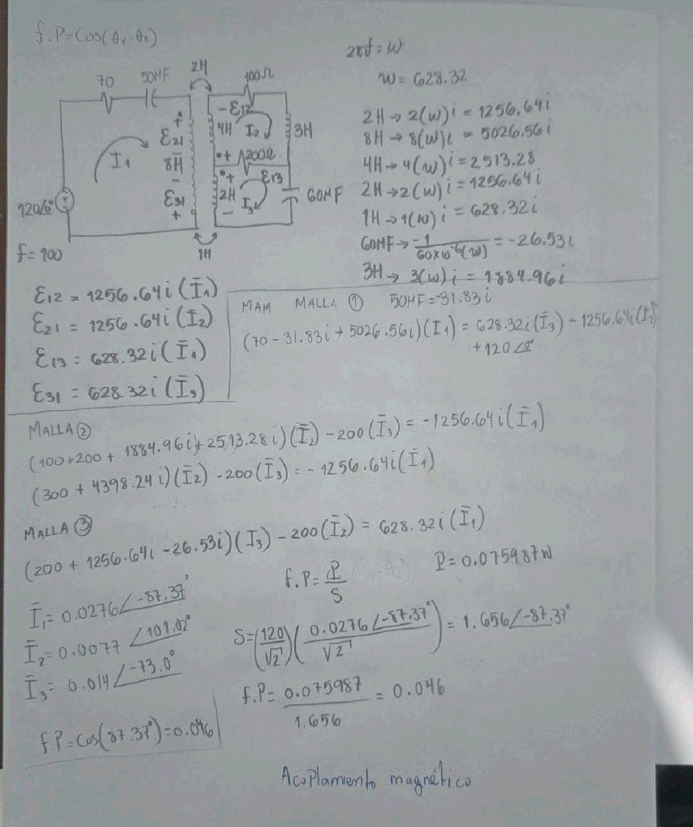 f.P=Cos(θv-θi)
2πf=w
w=628.32
70
50MF
2H
100Ω
-Ɛ12
+
Ɛ21
8H
-
Ɛ31
+
I1
4H
I2
3H
+
200Ω
+
2H
-
Ɛ13
I3
60MF
120∠0°
1H
f=100
2H→2(w)i=1256.64i
8H→8(w)i=5026.56i
4H→4(w)i=2513.28
2H→2(w)i=1256.64i
1H→1(w)i=628.32i
60MF→-1/60x10⁻⁶(w)=-26.53i
3H→3(w)i=1884.96i
Ɛ12=1256.64i(Ī1)
Ɛ21=1256.64i(Ī2)
Ɛ13=628.32i(Ī1)
Ɛ31=628.32i(Ī3)
MAM MALLA ① 50MF=-31.83i
(70-31.83i+5026.56i)(I1)=628.32i(Ī3)-1256.64i(Ī2)
+120∠0°
MALLA②
(100+200+1884.96i+2513.28i)(Ī2)-200(Ī3)=-1256.64i(Ī1)
(300+4398.24i)(Ī2)-200(Ī3)=-1256.64i(Ī1)
MALLA③
(200+1256.64i-26.53i)(I3)-200(Ī2)=628.32i(Ī1)
f.P=P/S
P=0.075987w
Ī1=0.0276∠-87.37°
Ī2=0.0077∠101.02°
Ī3=0.014∠-73.0°
S=(120/√2)(0.0276∠-87.37°/√2)=1.656∠-87.37°
f.P=0.075987/1.656=0.046
fP=Cos(87.37°)=0.046
Acoplamiento magnético